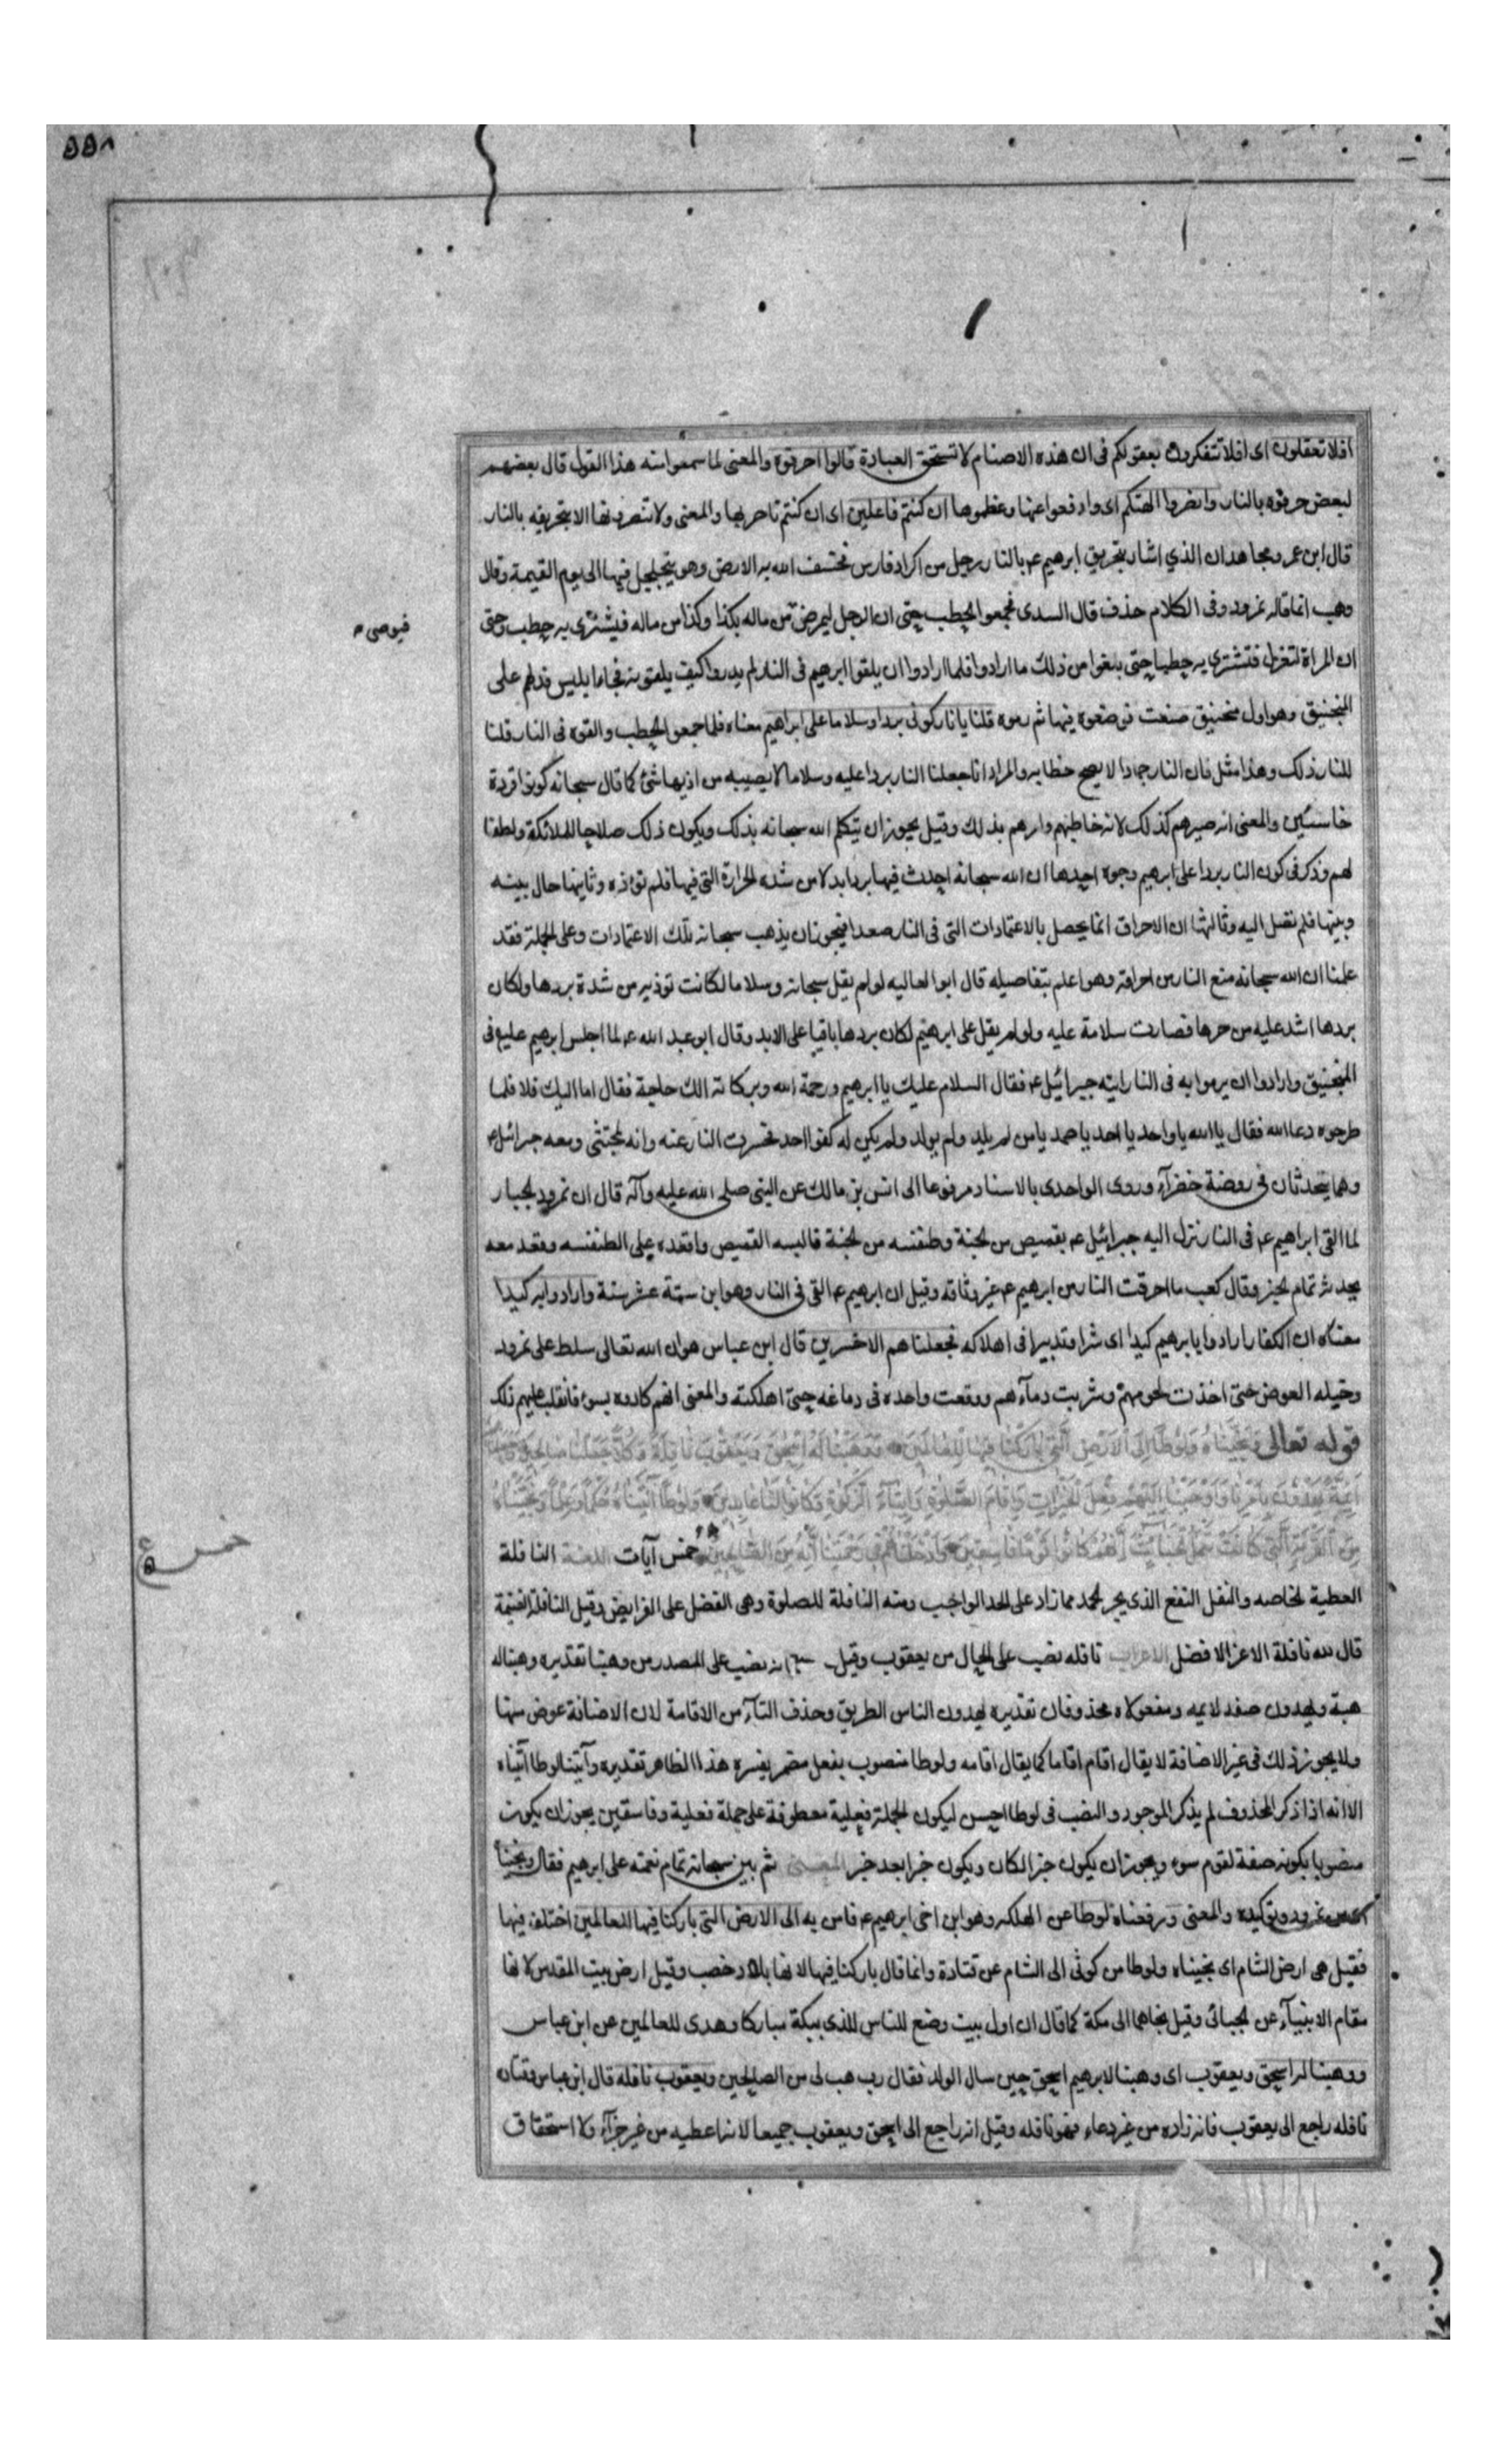 ۵۵۸
افلا تعقلون اى افلا تتفكرون بعقولكم فى ان هذه الاصنام لا تستحق العبادة قالوا احرقوه والمعنى لما سمعوا منه هذا القول قال بعضهم
لبعض حرقوه بالنار وانصروا الهتكم اى وادفعوا عنها وعظموها ان كنتم فاعلين اى ان كنتم ناصريها والمعنى ولا تنصرونها الا بتحريقه بالنار
قال ابن عمر ومجاهد ان الذي اشار بتحريق ابرهيم عم بالنار رجل من اكراد فارس فخسف الله به الارض وهو يتجلجل فيها الى يوم القيمة وقال
وهب انما قاله نمرود وفى الكلام حذف قال السدى فجمعوا الحطب حتى ان الرجل ليمرض من ماله بكذا وكذا من ماله فيشترى به حطب وحتى
فيوصى م
ان المراة لتغزل فتشتري به حطبا حتى بلغوا من ذلك ما ارادوا فلما ارادوا ان يلقوا ابرهيم فى النار لم يدروا كيف يلقونه فجاء ابليس فدلهم على
المنجنيق وهو اول منجنيق صنعت فوضعوه فيها ثم رموه قلنا يا نار كونى بردا وسلاما على ابراهيم معناه فلما جمعوا الحطب والقوه فى النار قلنا
للنار ذلك وهذا مثل فان النار جمادا لا يصح خطابه والمراد انا جعلنا النار بردا عليه وسلاما لا يصيبه من اذيها شئ كما قال سبحانه كونوا قردة
خاسئين والمعنى انه صيرهم كذلك لا انه خاطبهم وامرهم بذلك وقيل يجوز ان يتكلم الله سبحانه بذلك ويكون ذلك صلاحا للملائكة ولطفا
لهم وذكر فى كون النار بردا على ابرهيم وجوه احدها ان الله سبحانه احدث فيها بردا بدلا من شدة الحرارة التى فيها فلم تؤذه وثانيها حال بينه
وبينها فلم تصل اليه وثالثها ان الاحراق انما يحصل بالاعتمادات التى فى النار صعدا فيجوز ان يذهب سبحانه تلك الاعتمادات وعلى الجملة فقد
علمنا ان الله سبحانه منع النار من احراقه وهو اعلم بتفاصيله قال ابو العاليه لو لم يقل سبحانه وسلاما لكانت توذيه من شدة بردها ولكان
بردها اشد عليه من حرها فصارت سلامة عليه ولو لم يقل على ابرهيم لكان بردها باقيا على الابد وقال ابو عبد الله عم لما اجلس ابرهيم عليع فى
المنجنيق وارادوا ان يرموا به فى النار اتيه جبرائيل عم فقال السلام عليك يا ابرهيم ورحمة الله وبركاته الك حاجة فقال اما اليك فلا فلما
طرحوه دعا الله فقال يا الله يا واحد يا احد يا صمد يا من لم يلد ولم يولد ولم يكن له كفوا احد فحسرت النار عنه وانه لمحتبى ومعه جبرائيل عم
وهما يتحدثان فى روضة خضرآء وروى الواحدى بالاسناد مرفوعا الى انس بن مالك عن النبى صلى الله عليه وآله قال ان نمرود الجبار
لما القى ابراهيم عم فى النار نزل اليه جبرائيل عم بقميص من الجنة وطنفسه من الجنة فالبسه القميص واقعده على الطنفسه وقعد معه
يحدثه تمام الخبر وقال كعب ما احرقت النار من ابرهيم عم غير وثاقه وقيل ان ابرهيم عم القى فى النار وهو ابن ستة عشر سنة وارادوا به كيدا
معناه ان الكفار ارادوا بابرهيم كيدا اى شرا وتدبيرا فى اهلاكه فجعلناهم الاخسرين قال ابن عباس هو ان الله تعالى سلط على نمرود
وخيله البعوض حتى اخذت لحومهم وشربت دمآءهم ووقعت واحدة فى دماغه حتى اهلكته والمعنى انهم كادوه بسوء فانقلب عليهم ذلك
قوله تعالى وَنَجَّيْنَاهُ وَلُوطًا اِلَى الْاَرْضِ الَّتِى بَارَكْنَا فِيهَا لِلْعَالَمِينَ وَوَهَبْنَا لَهُ اِسْحٰقَ وَيَعْقُوبَ نَافِلَةً وَكُلًّا جَعَلْنَا صَالِحِينَ وَجَعَلْنَاهُمْ
اَئِمَّةً يَهْدُونَ بِاَمْرِنَا وَاَوْحَيْنَا اِلَيْهِمْ فِعْلَ الْخَيْرَاتِ وَاِقَامَ الصَّلٰوةِ وَاِيتَآءَ الزَّكٰوةِ وَكَانُوا لَنَا عَابِدِينَ وَلُوطًا آتَيْنَاهُ حُكْمًا وَعِلْمًا وَنَجَّيْنَاهُ
مِنَ الْقَرْيَةِ الَّتِى كَانَتْ تَعْمَلُ الْخَبَآئِثَ اِنَّهُمْ كَانُوا قَوْمَ سَوْءٍ فَاسِقِينَ وَاَدْخَلْنَاهُ فِى رَحْمَتِنَا اِنَّهُ مِنَ الصَّالِحِينَ خمس آيات اللغة النافلة
خمس ع
العطية الخاصه والنفل النفع الذى يجر الحمد مما زاد على الحد الواجب ومنه النافلة للصلوة وهى الفضل على الفرايض وقيل النافلة الغنيمة
قال لله نافلة الاعز الافضل الاعراب نافله نصب على الحال من يعقوب وقيل انه نصب على المصدر من وهبنا تقديره وهبنا له
هبة ويهدون صفة لائمه ومفعولاه محذوفان تقديره يهدون الناس الطريق وحذف التآء من الاقامة لان الاضافة عوض منها
ولا يجوز ذلك فى غير الاضافة لا يقال اقام اقاما كما يقال اقامه ولوطا منصوب بفعل مضمر يفسره هذا الظاهر تقديره وآتينا لوطا آتيناه
الا انه اذا ذكر المحذوف لم يذكر الموجود والنصب فى لوطا احسن ليكون الجملة فعلية معطوفة على جملة فعلية وفاسقين يجوز ان يكون
منصوبا بكونه صفة لقوم سوء ويجوز ان يكون خبر الكان ويكون خبرا بعد خبر المعنى ثم بين سبحانه تمام نعمته على ابرهيم فقال ونجيناه
من نمرود وكيده والمعنى ورفعناه لوطا عن الهلكه وهو ابن اخى ابرهيم عم فامن به الى الارض التى باركنا فيها للعالمين اختلف فيها
فقيل هى ارض الشام اى نجيناه ولوطا من كوثى الى الشام عن قتادة وانما قال باركنا فيها لانها بلاد خصب وقيل ارض بيت المقدس لانها
مقام الانبيآء عن الجبائى وقيل نجاهما الى مكة كما قال ان اول بيت وضع للناس للذى ببكة مباركا وهدى للعالمين عن ابن عباس
ووهبنا له اسحق ويعقوب اى وهبنا لابرهيم اسحق حين سال الولد فقال رب هب لى من الصالحين ويعقوب نافله قال ابن عباس وقتاده
نافله راجع الى يعقوب فانه زاده من غير دعاء فهو نافله وقيل انه راجع الى اسحق ويعقوب جميعا لانه اعطيه من غير جزآء ولا استحقاق